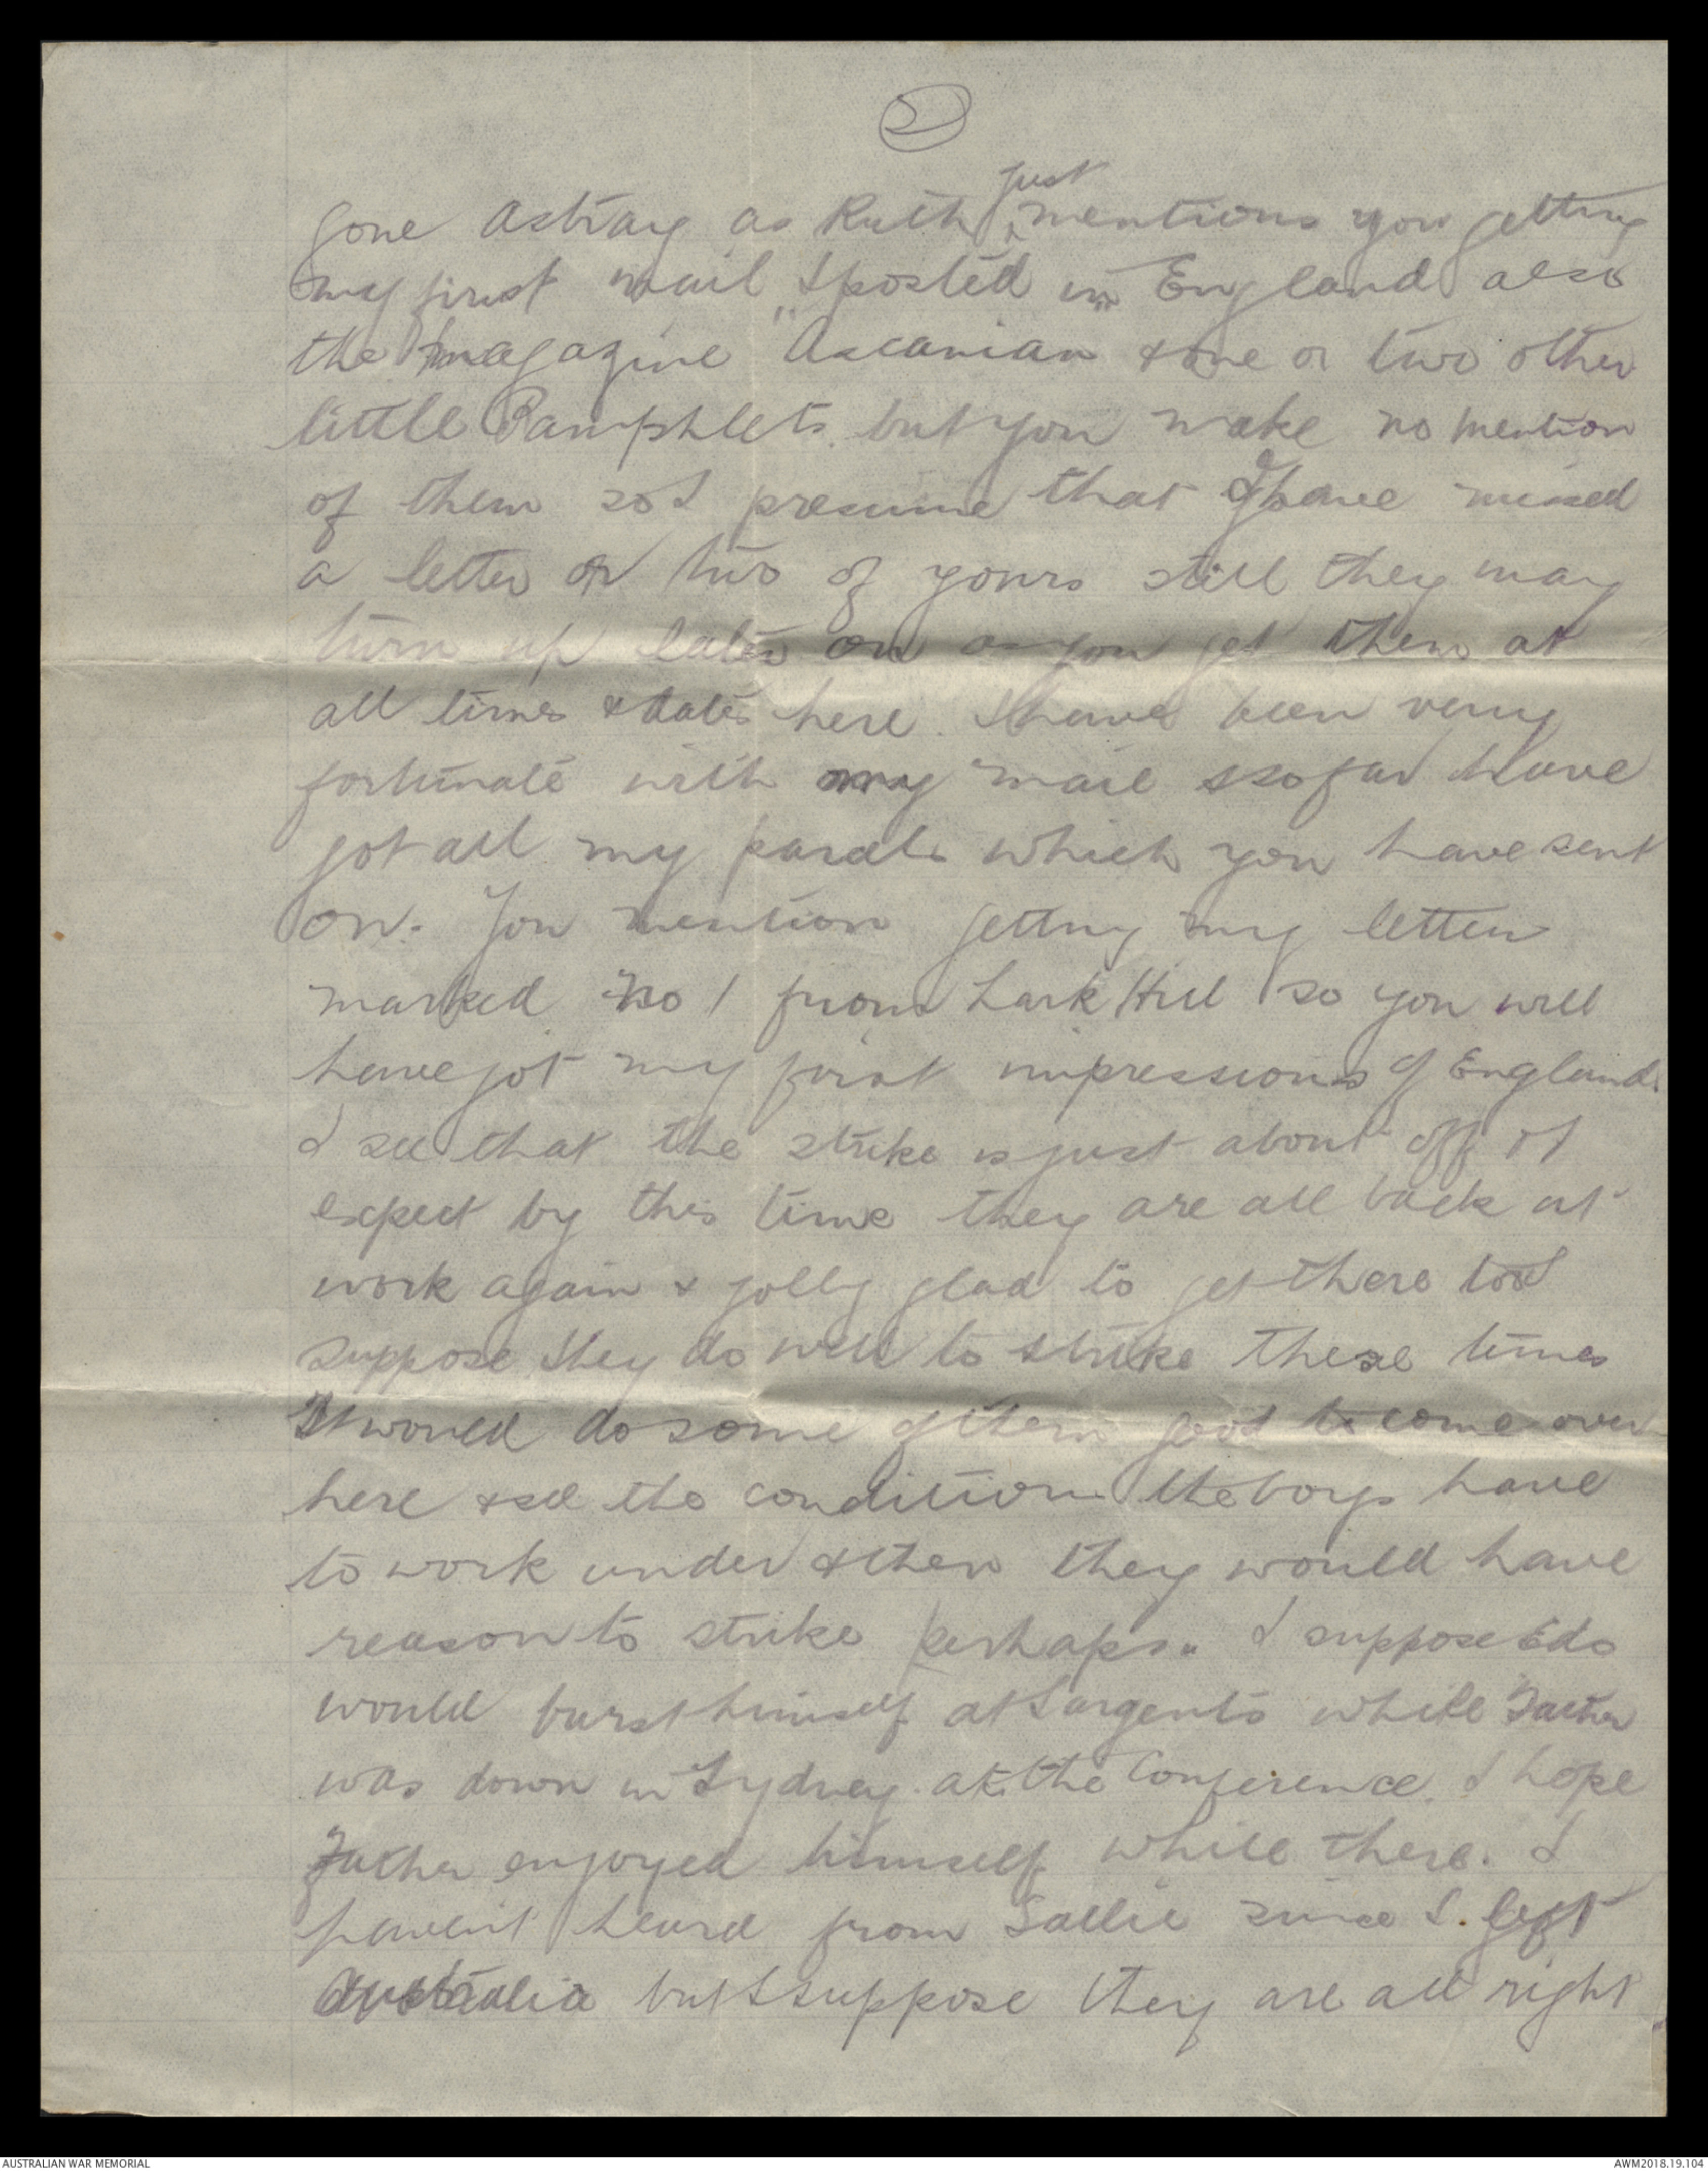 2
just
gone astray as Ruth mentions you getting
my first mail I posted in England also
the magazine "Ascanian" & one or two other
little Pamphlets. but you make no mention
of them so I presume that I have missed
a letter or two of yours still they may
turn up later on as you get them at
all times & dates here. I have been very
fortunate with my mail & so far have
got all my parcels which you have sent
on. You mention getting my letter
marked No 1 from Lark Hill so you will
have got my first impressions of England.
I see that the strike is just about off & I
expect by this time they are all back at
work again & jolly glad to get there too I
suppose they do well to strike these times
It would do some of them good to come over
here & see the conditions the boys have
to work under & then they would have
reason to strike perhaps. I suppose Edo
would burst himself at Sargents while Father
was down in Sydney at the Conference. I hope
Father enjoyed himself while there. I
havent heard from Sallie since I left
Australia but I suppose they are all right
AUSTRALIAN WAR MEMORIAL
AWM2018.19.104